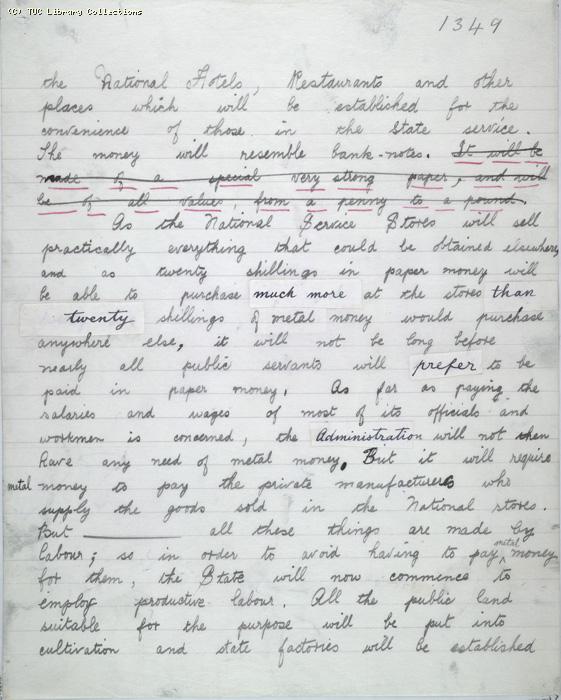 (C) TUC Library Collections
1349
the National Hotels, Restaurants and other
places which will be established for the
convenience of those in the State service.
The money will resemble bank-notes. It will be
made of a special very strong paper, and will
be of all values, from a penny to a pound.
As the National Service Stores will sell
practically everything that could be obtained elsewhere,
and as twenty shillings in paper money will
be able to purchase much more at the stores than
twenty shillings of metal money would purchase
anywhere else, it will not be long before
nearly all public servants will prefer to be
paid in paper money. As far as paying the
salaries and wages of most of its officials and
workmen is concerned, the Administration will not then
have any need of metal money. But it will require
metal money to pay the private manufacturers who
supply the goods sold in the National stores.
But all these things are made by
labour; so in order to avoid having to pay metal money
for them, the State will now commence to
employ productive labour. All the public land
suitable for the purpose will be put into
cultivation and state factories will be established